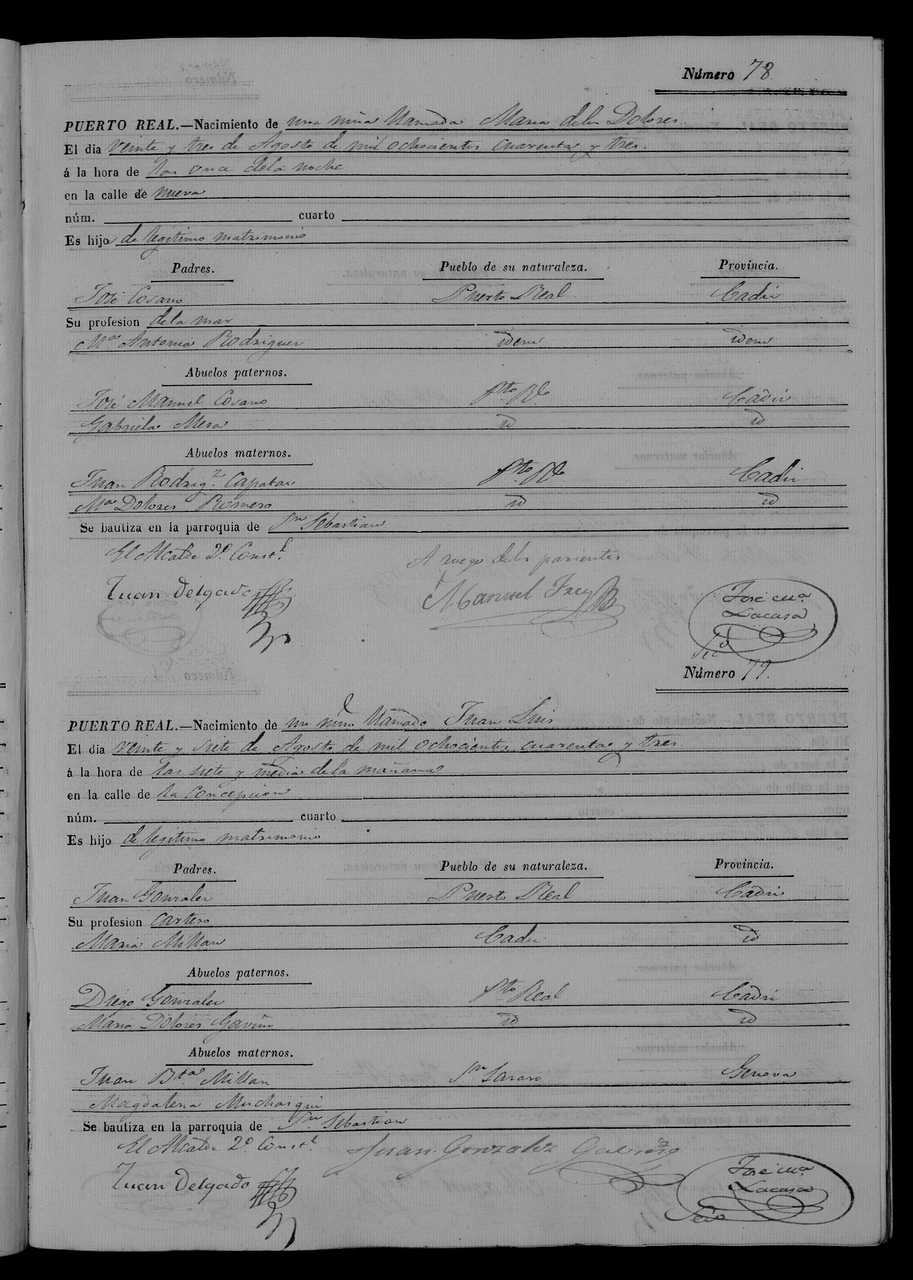 Número 78
PUERTO REAL.—Nacimiento de una niña llamada Maria delos Dolores
El dia veinte y tres de Agosto de mil ochocientos cuarenta y tres.
á la hora de las once dela noche
en la calle de nueva
núm. cuarto
Es hijo de legitimo matrimonio
Padres. Pueblo de su naturaleza. Provincia.
José Cosano Puerto Real Cadiz
Su profesion dela mar
Mª Antonia Rodriguez idem idem
Abuelos paternos.
José Manuel Cosano Pto Rl Cadiz
Gabriela Mera id id
Abuelos maternos.
Juan Rodrigz Pto Rl Cadiz
Mª Dolores Romero id id
Se bautiza en la parroquia de Sn Sebastian
El Alcalde 2º Constl A ruego delos parientes
Juan Delgado Manuel José Mª
Lacasa
Srio
Número 79.
PUERTO REAL.—Nacimiento de un niño llamado Juan Luis
El dia veinte y siete de Agosto de mil ochocientos cuarenta y tres
á la hora de las siete y media de la mañana
en la calle de la Concepcion
núm. cuarto
Es hijo de legitimo matrimonio
Padres. Pueblo de su naturaleza. Provincia.
Juan Gonzalez Puerto Real Cadiz
Su profesion cartero
Maria Millan Cadiz id
Abuelos paternos.
Diego Gonzalez Pto Real Cadiz
Maria Dolores Gaviño id id
Abuelos maternos.
Juan Bta Millan Sn Genova
Magdalena
Se bautiza en la parroquia de Sn Sebastian
El Alcalde 2º Constl Juan Gonzalez Gaviño
Juan Delgado José Mª
Lacasa
Srio